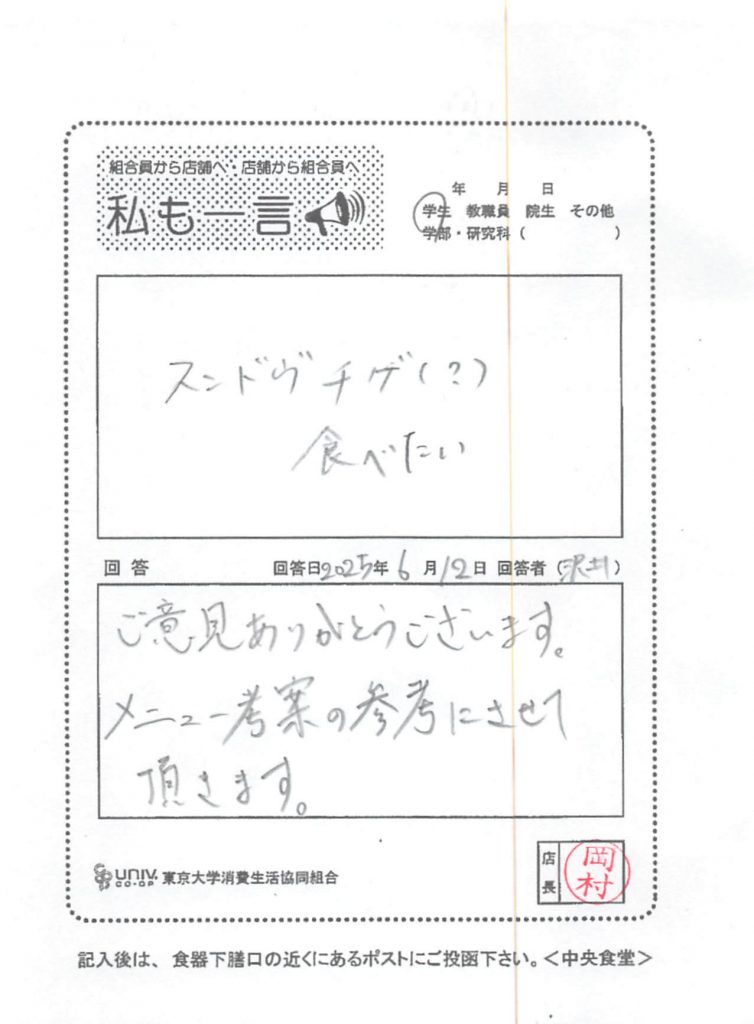 組合員から店舗へ・店舗から組合員へ
私も一言
年 月 日
学生 教職員 院生 その他
学部・研究科( )
スンドゥヴチゲ(?)
食べたい
回答 回答日2025年6月12日 回答者(沢井)
ご意見ありがとうございます。
メニュー考案の参考にさせて
頂きます。
UNIV. CO-OP 東京大学消費生活協同組合
店長 岡村
記入後は、食器下膳口の近くにあるポストにご投函下さい。<中央食堂>